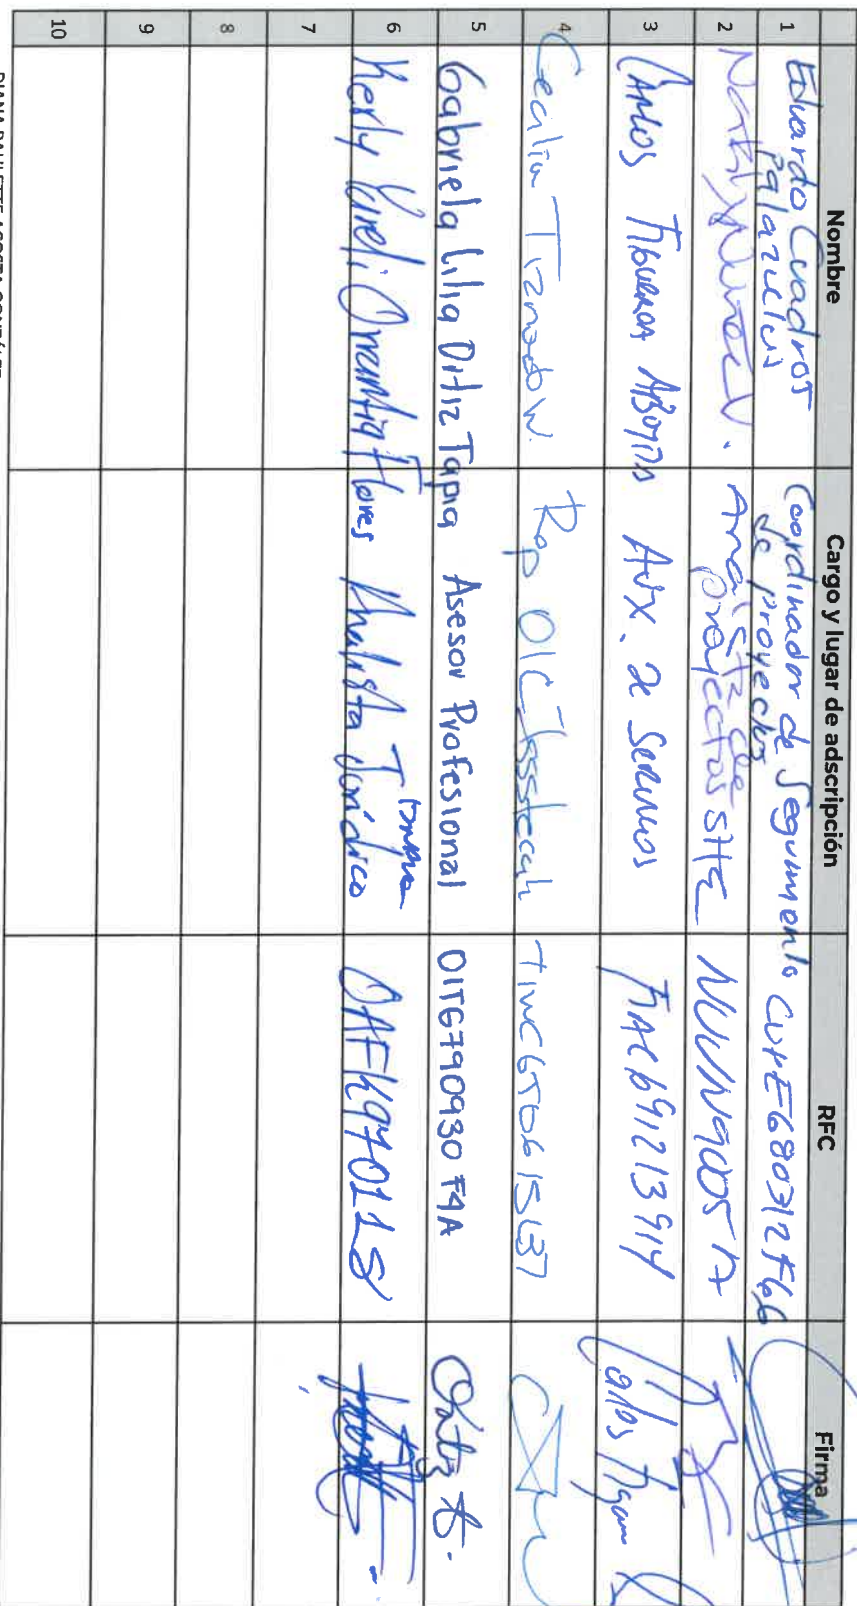 Nombre Cargo y lugar de adscripción RFC Firma
1 Eduardo Cuadros Palazuelos Coordinador de Seguimiento de proyectos CUPE680312F66
2 Nathly Nuñez V. Analista de proyectos SHE NUVN9005
3 Carlos Figueroa Aux. de Servicios FIAC691213914
4 Cecilia Tiznado W. Rep OIC TIWC650615
5 Gabriela Lilia Ortiz Tapia Asesor Profesional OITG790930 F9A
6 Kerly Yareli Orrantia Flores Analista Jurídico OAFK970118
7
8
9
10
DIANA PAULETTE ACOSTA GONZÁLEZ